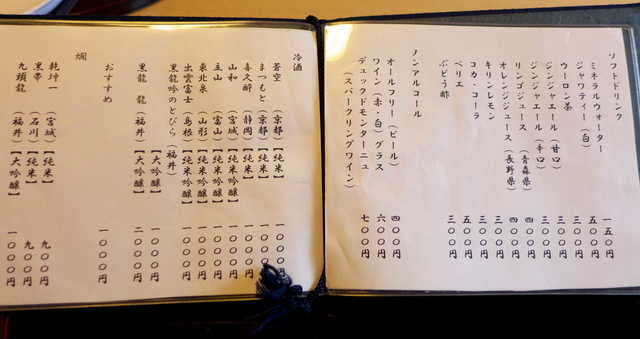 ソフトドリンク
ミネラルウォーター 一五〇円
ジャワティー(白) 五〇〇円
ウーロン茶 三〇〇円
ジンジャエール(甘口) 三〇〇円
ジンジャエール(辛口) 三〇〇円
リンゴジュース(青森県) 四〇〇円
オレンジジュース(長野県) 四〇〇円
キリンレモン 三〇〇円
コカ・コーラ 三〇〇円
ペリエ 五〇〇円
ぶどう酢 三〇〇円
ノンアルコール
オールフリー(ビール) 四〇〇円
ワイン(赤・白)グラス 六〇〇円
デュックドモンターニュ 七〇〇円
(スパークリングワイン)
冷酒
蒼空(京都)【純米】 一〇〇〇円
まつもと(京都)【純米】 一〇〇〇円
喜久酔(静岡)【純米】 一〇〇〇円
山和(宮城)【純米吟醸】 一〇〇〇円
立山(富山)【純米吟醸】 一〇〇〇円
東北泉(山形)【純米吟醸】 一〇〇〇円
出雲富士(島根)【純米吟醸】 一〇〇〇円
黒龍吟のとびら(福井)
【大吟醸】 一〇〇〇円
黒龍 龍(福井)【大吟醸】 二〇〇〇円
おすすめ 一〇〇〇円
燗
乾坤一(宮城)【純米】 九〇〇円
黒帯(石川)【純米】 九〇〇円
九頭龍(福井)【大吟醸】 一〇〇〇円